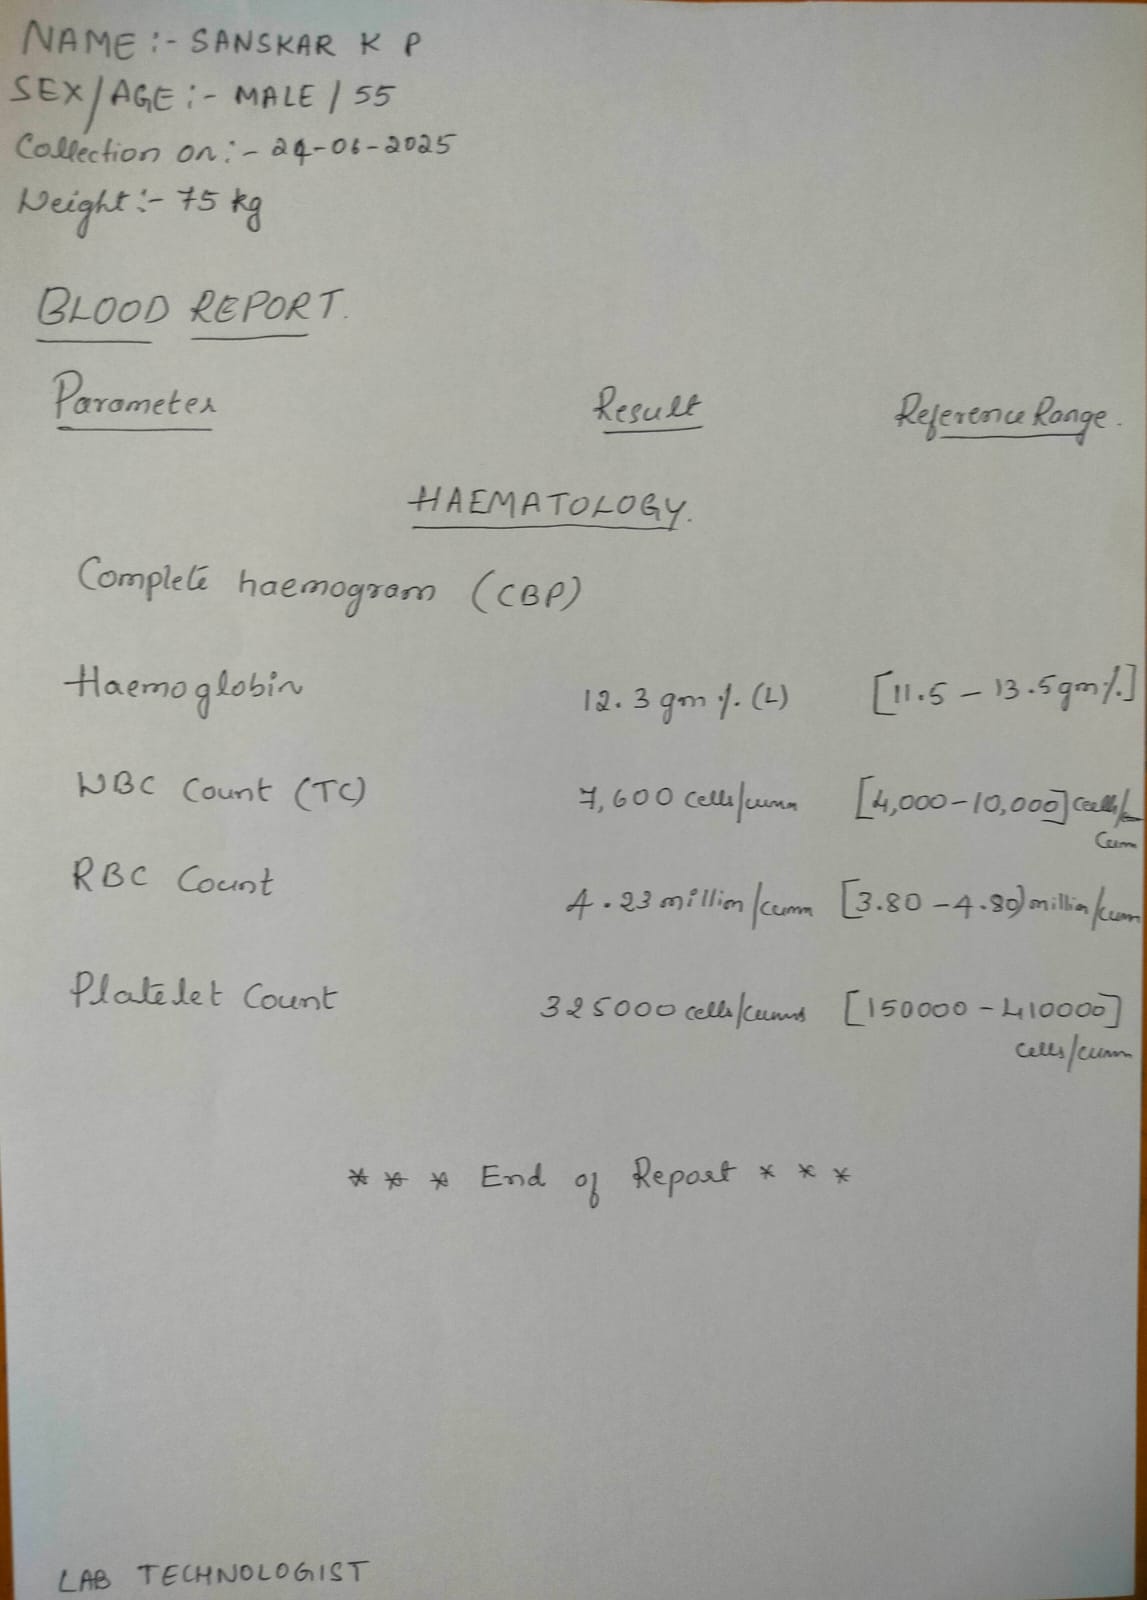 NAME :- SANSKAR K P
SEX/AGE :- MALE / 55
Collection on :- 24-06-2025
Weight :- 75 kg
BLOOD REPORT.
Parameter Result Reference Range.
HAEMATOLOGY.
Complete haemogram (CBP)
Haemoglobin 12.3 gm %. (L) [11.5 - 13.5 gm %.]
WBC Count (TC) 7,600 cells/cumm [4,000-10,000] cells/
cumm
RBC Count 4.23 million/cumm [3.80 - 4.80) million/cumm
Platelet Count 325000 cells/cumm [150000 - 410000]
cells/cumm
* * * End of Report * * *
LAB TECHNOLOGIST